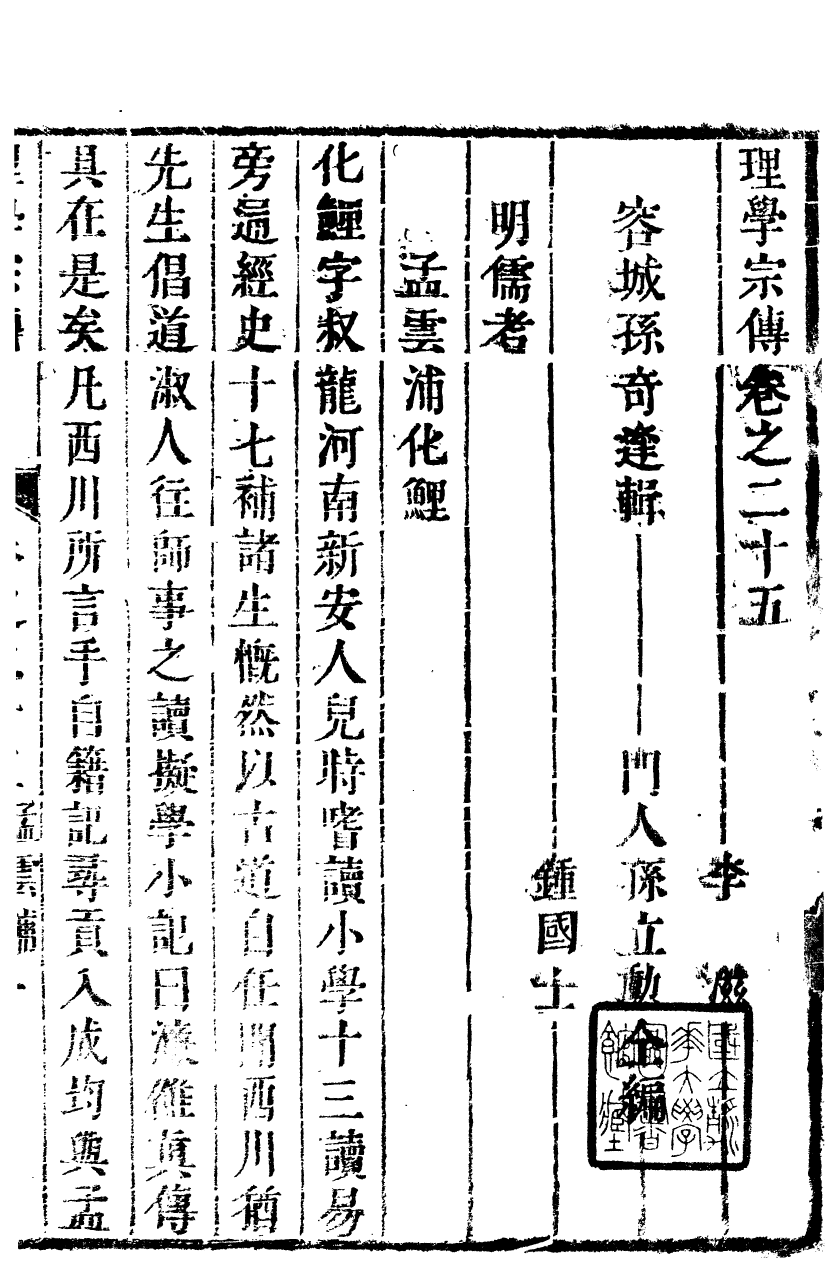 理學宗傳卷之二十五
李 滋
容城孫奇逢輯 門人孫立勳仝編
鍾國士
明儒考
孟雲浦化鯉
化鯉字叔龍河南新安人兒時嗜讀小學十三讀易
旁逼經史十七補諸生慨然以古道自任聞西川猶
先生倡道淑人往師事之讀擬學小記曰濂雒真傳
具在是矣凡西川所言手自籍記尋貢入成均與孟
國立清華大學